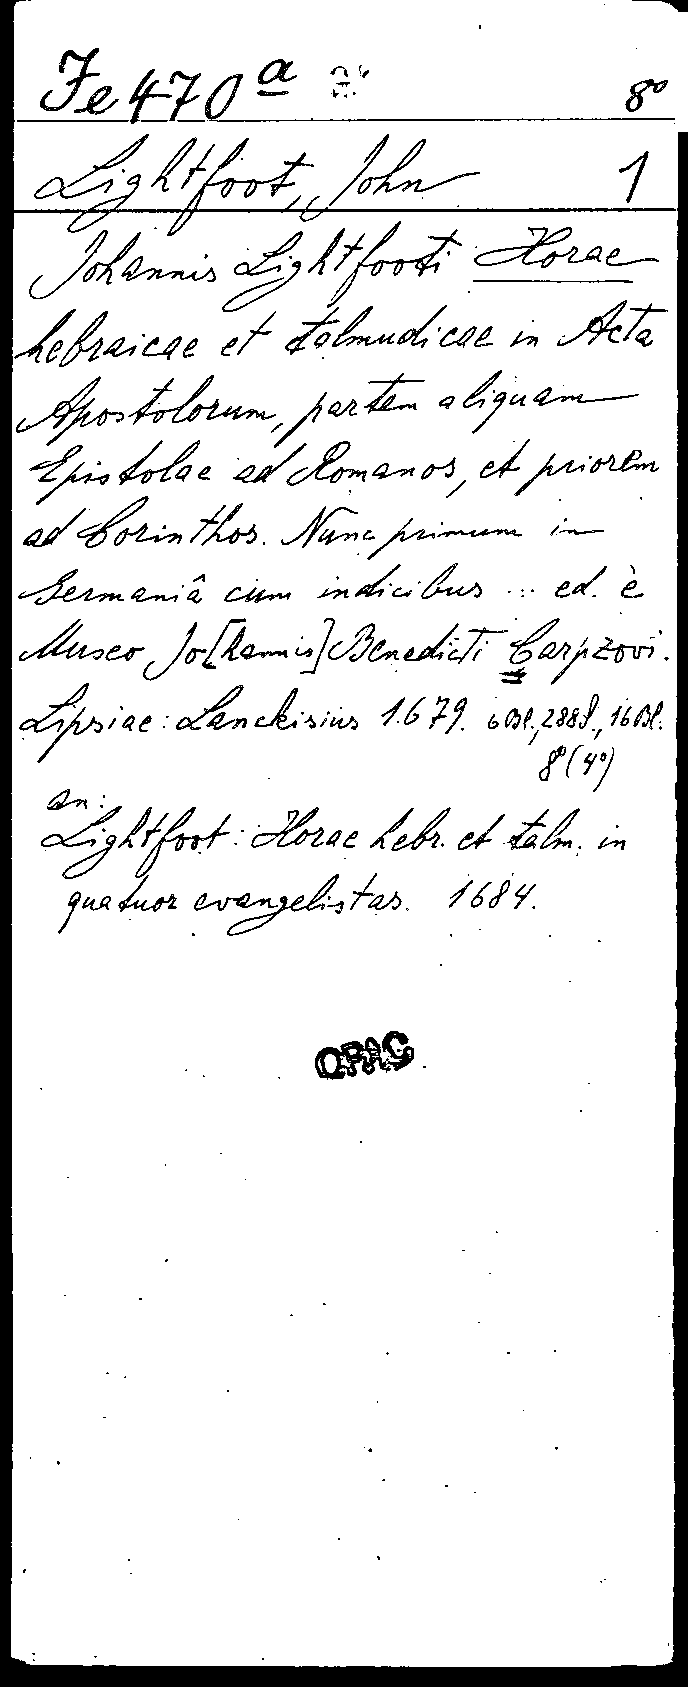 Fe 470 a 8°
Lightfoot, John 1
Johannis Lightfooti Horae
hebraicae et talmudicae in Acta
Apostolorum, partem aliquam
Epistolae ad Romanos, et priorem
ad Corinthos. Nunc primum in
Germaniâ cum indicibus ... ed. è
Museo Jo[hannis] Benedicti Carpzovi.
Lipsiae: Lanckisius 1679. 6 Bl., 288 S., 16 Bl.
8° (4°)
an:
Lightfoot: Horae hebr. et talm. in
quatuor evangelistas. 1684.
OPAC